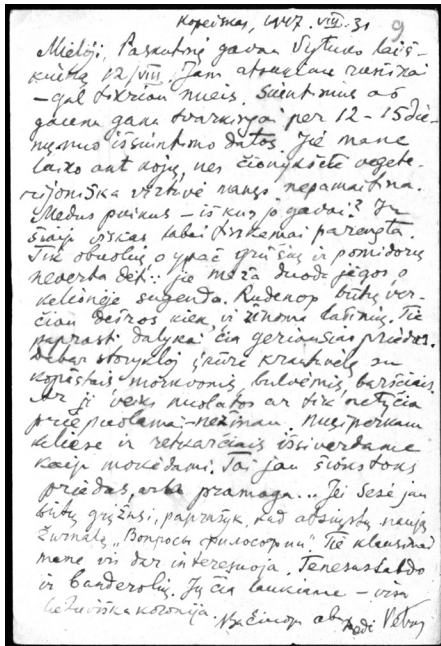 Kopeiskas, 1947.VIII.31
9
Mieloji, Paskutinę gavau Vytuko laiš-
kutį 12/VIII. Jam atrašiau rusiškai
– gal tikriau nueis. Siuntinius aš
gaunu gana tvarkingai per 12–15 die-
nų nuo išsiuntimo datos. Jie mane
laiko ant kojų, nes čionykštė vegete-
rijoniška virtuvė nelabai pamaitina.
Medus puikus – iš kur jo gavai? Ir
šiaip viskas labai tinkamai parengta.
Tik obuolių, o ypač grūšių ir pomidorų
neverta dėti: jie maža duoda jėgos, o
kelionėje sugenda. Rudeniop būtų ver-
čiau dešros kiek ir žinoma lašinių. Tie
paprasti dalykai čia geriausias priedas.
Dabar stovykloj įkūrė krautuvėlę su
kopūstais morkvomis, bulvėmis, barščiais.
Ar ji veiks nuolatos ar tik
– nežinau. Nusiperkam
keliese ir retkarčiais išsiverdame
kaip mokėdami. Tai jau šioks toks
priedas, arba pramoga... Jei Sesė jau
būtų grįžusi, paprašyk, kad atsiųstų naują
žurnalą „Вопросы философии". Tie klausimai
mane vis dar interesuoja. Tenesustabdo
ir banderolių. Jų čia laukiame – visa
lietuviška kolonija.